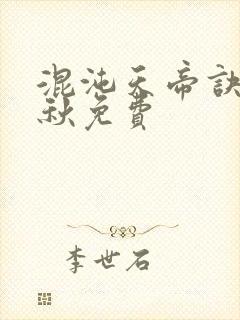 混沌天帝訣
秋免費
李世石